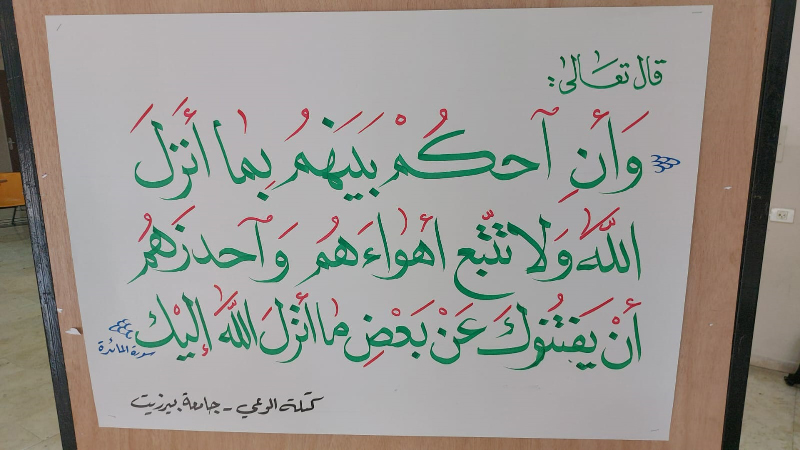 قال تعالى:
وَأَنِ ٱحكُمْ بَيَنَهُمُ بِمَا أَنَزلَ
اللَّهُ وَلَا تَتَّبِع أَهْوَاءَهُمُ وَٱحذَرْهُم
أَنْ يَفتِنُوكَ عَنْ بَعْضِ مَا أَنْزلَ اللَّهُ إِليْك
سورة المائدة
كتلة الوعي - جامعة بيرزيت